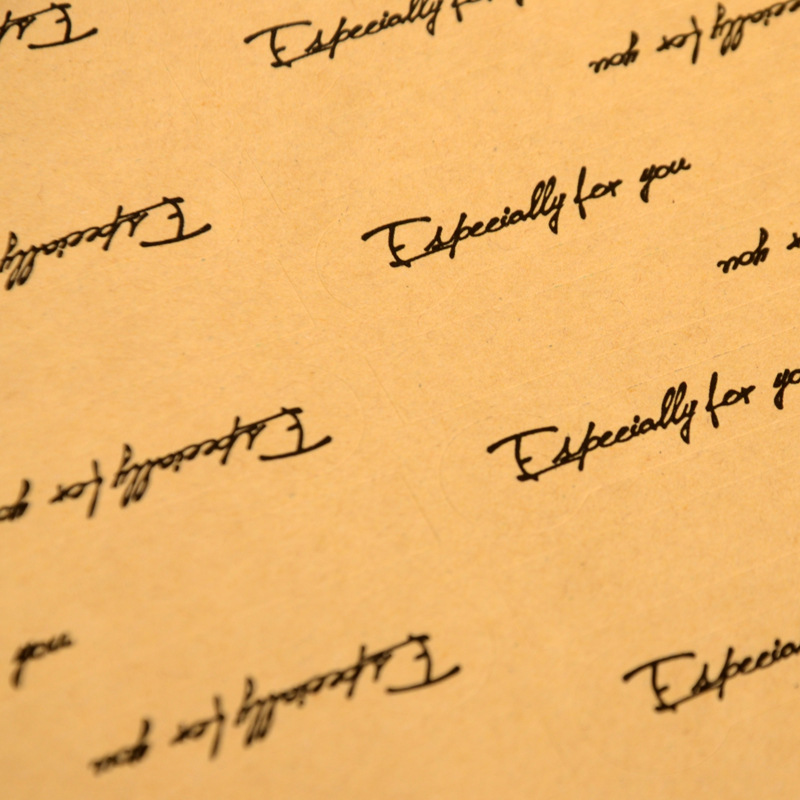 Especially for
Especially for you
Especially for you
Especially for you
Especially
Especially for yo
you
Especially for yo
Especially
you
Especially for you